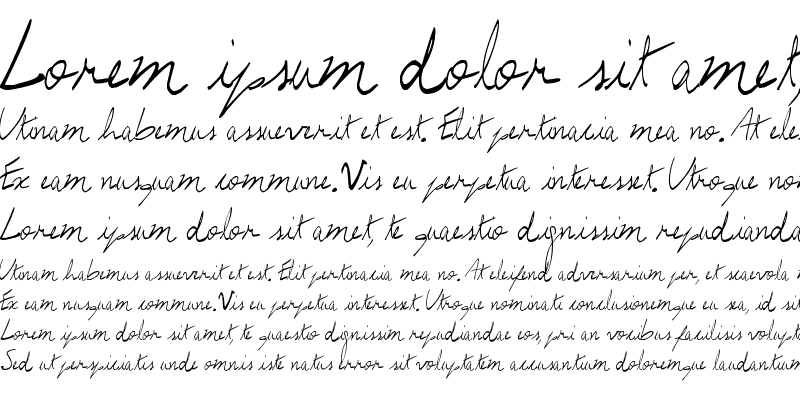 Lorem ipsum dolor sit amet,
Utinam habemus assueverit et est. Elit pertinacia mea no. At elei
Ex eam nusquam commune. Vis eu perpetua interesset. Utroque non
Lorem ipsum dolor sit amet, te quaestio dignissim repudianda
Utinam habemus assueverit et est. Elit pertinacia mea no. At eleifend adversarium per, et scaevola
Ex eam nusquam commune. Vis eu perpetua interesset. Utroque nominati conclusionemque eu sea, id sit
Lorem ipsum dolor sit amet, te quaestio dignissim repudiandae eos, pri an vocibus facilisis volupt
Sed ut perspiciatis unde omnis iste natus error sit voluptatem accusantium doloremque laudantium